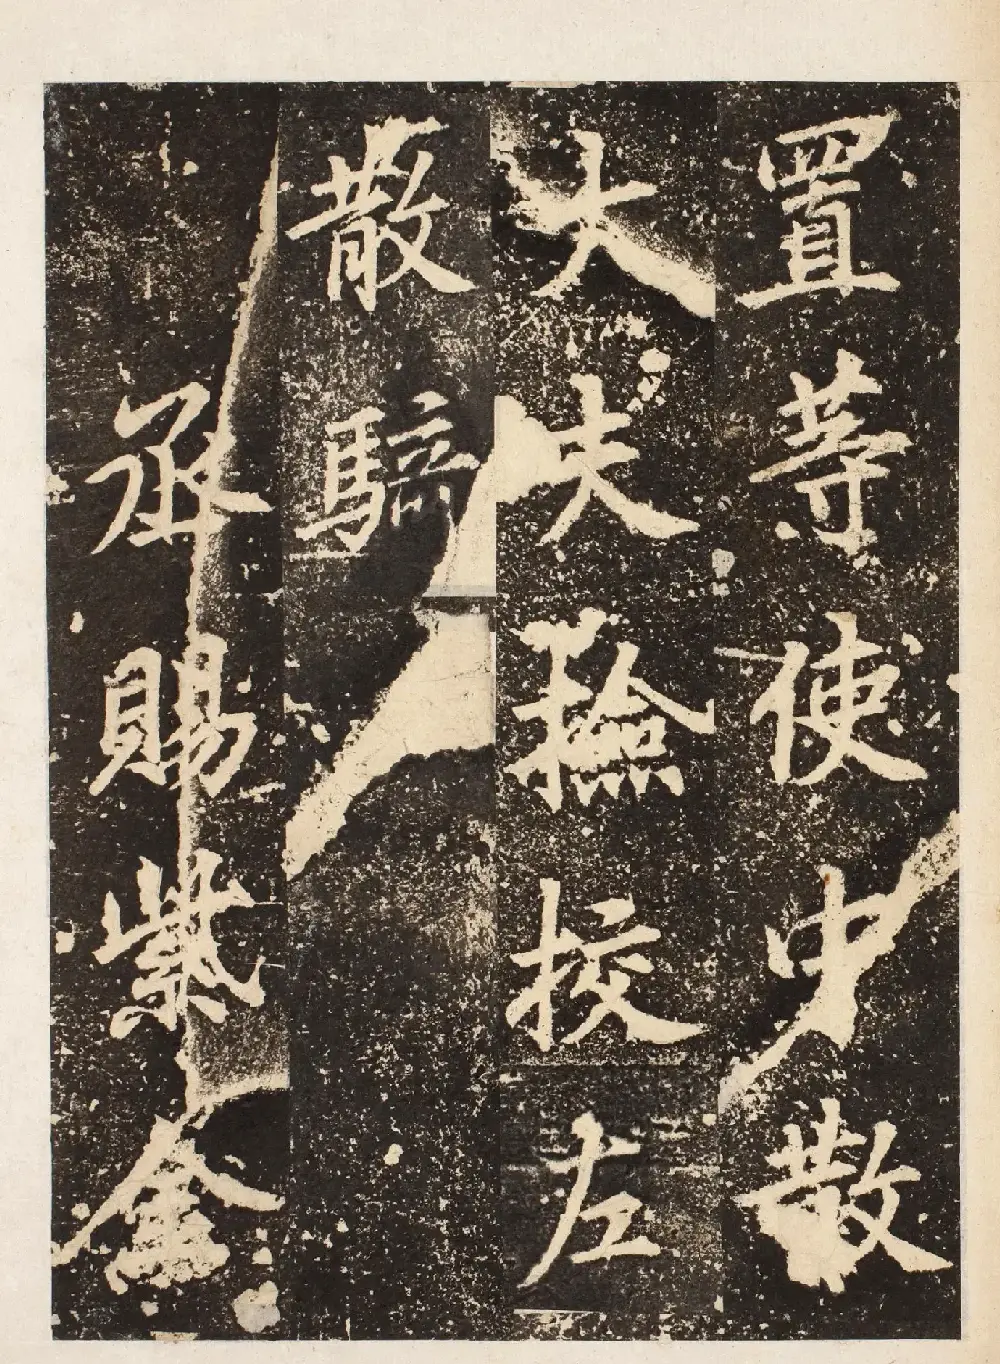 置等使中散
大夫撿挍左
散騎
丞賜紫金